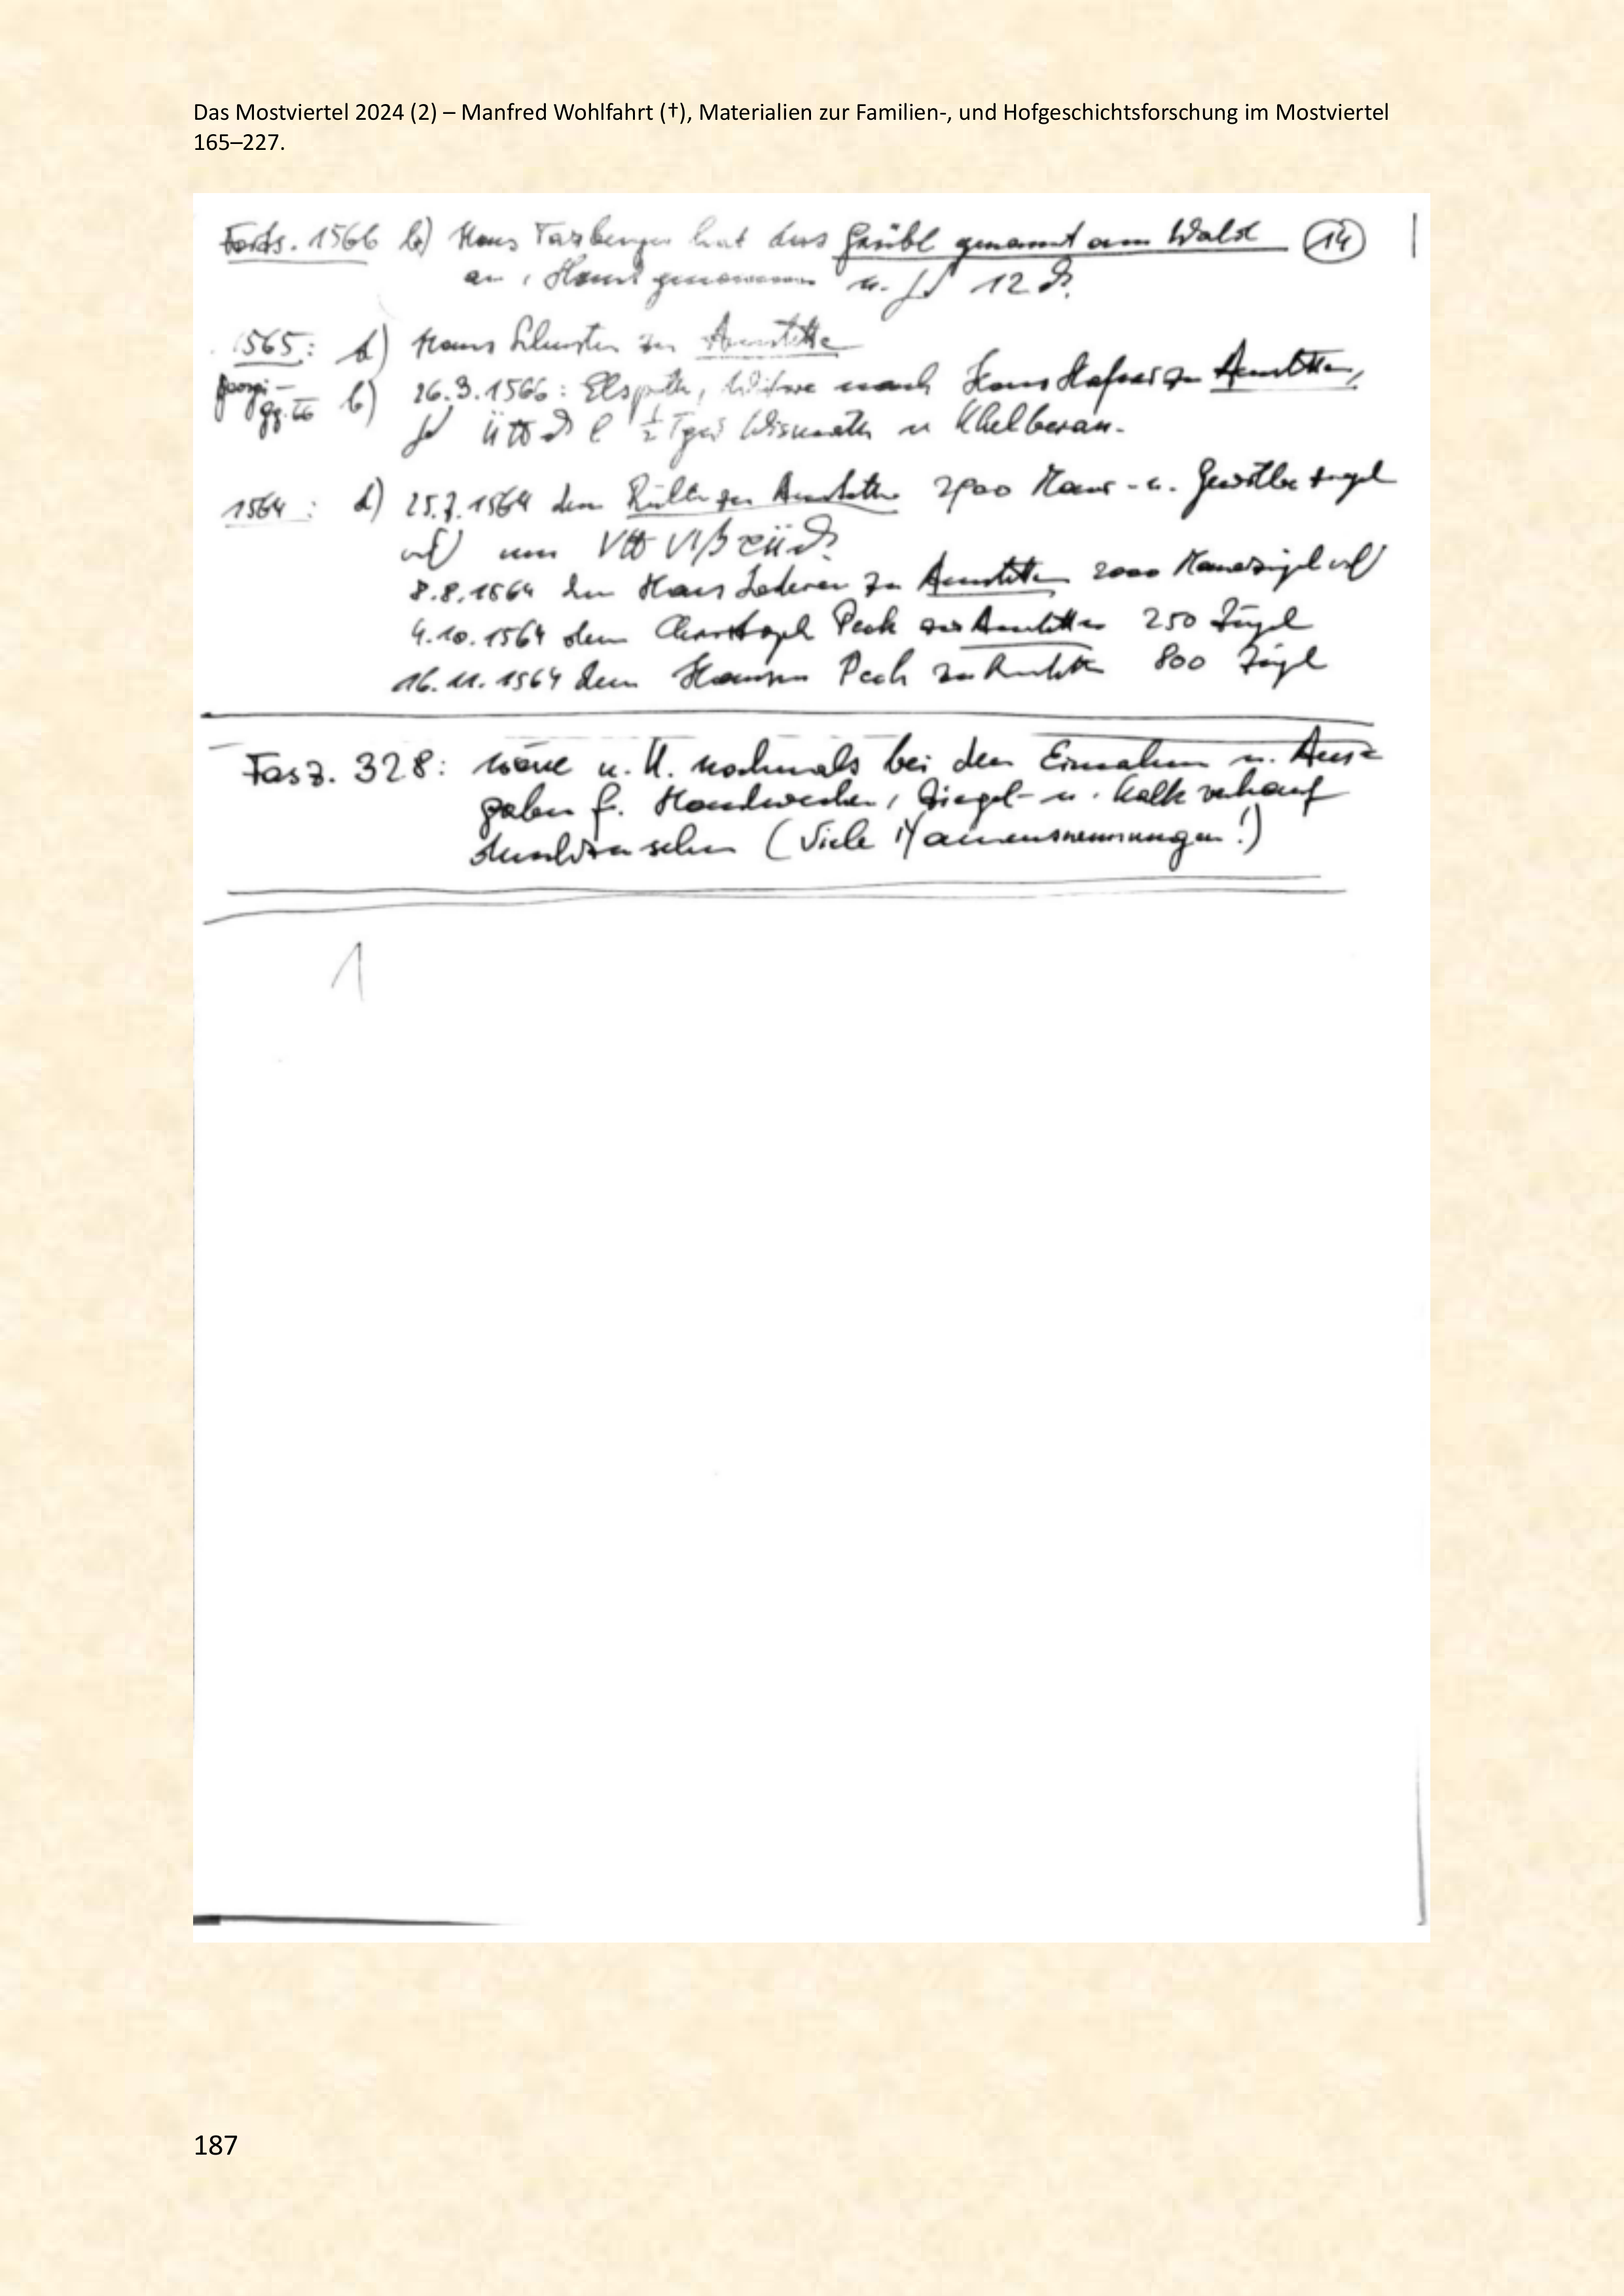 Das Mostviertel 2024 (2) – Manfred Wohlfahrt (†), Materialien zur Familien-, und Hofgeschichtsforschung im Mostviertel
165–227.
Forts. 1566 b) Hans hat das genannt am Wald 14
an, genommen u. 12 ₰
1565: d) Hans Schuster zu Amstetten
Georgi –
b) 26.3.1566: Elspeth, Witwe nach Hans Hafner zu Amstetten,
½ Wismath
1564: d) 25.7.1564 dem zu Amstetten Maur- u. Gewölbe
um
8.8.1564 dem Hans Lederer zu Amstetten 2000
4.10.1564 dem Christoph Peck zu Amstetten 250 Zigl
16.11.1564 dem Hannsen Peck zu Amstetten 800 Zigl
Fasz. 328: wäre u. U. nochmals bei den Einnahmen u. Aus=
gaben f. Handwerker, Ziegel- u. Kalkverkauf
durchzusehen (Viele Namensnennungen!)
1
187